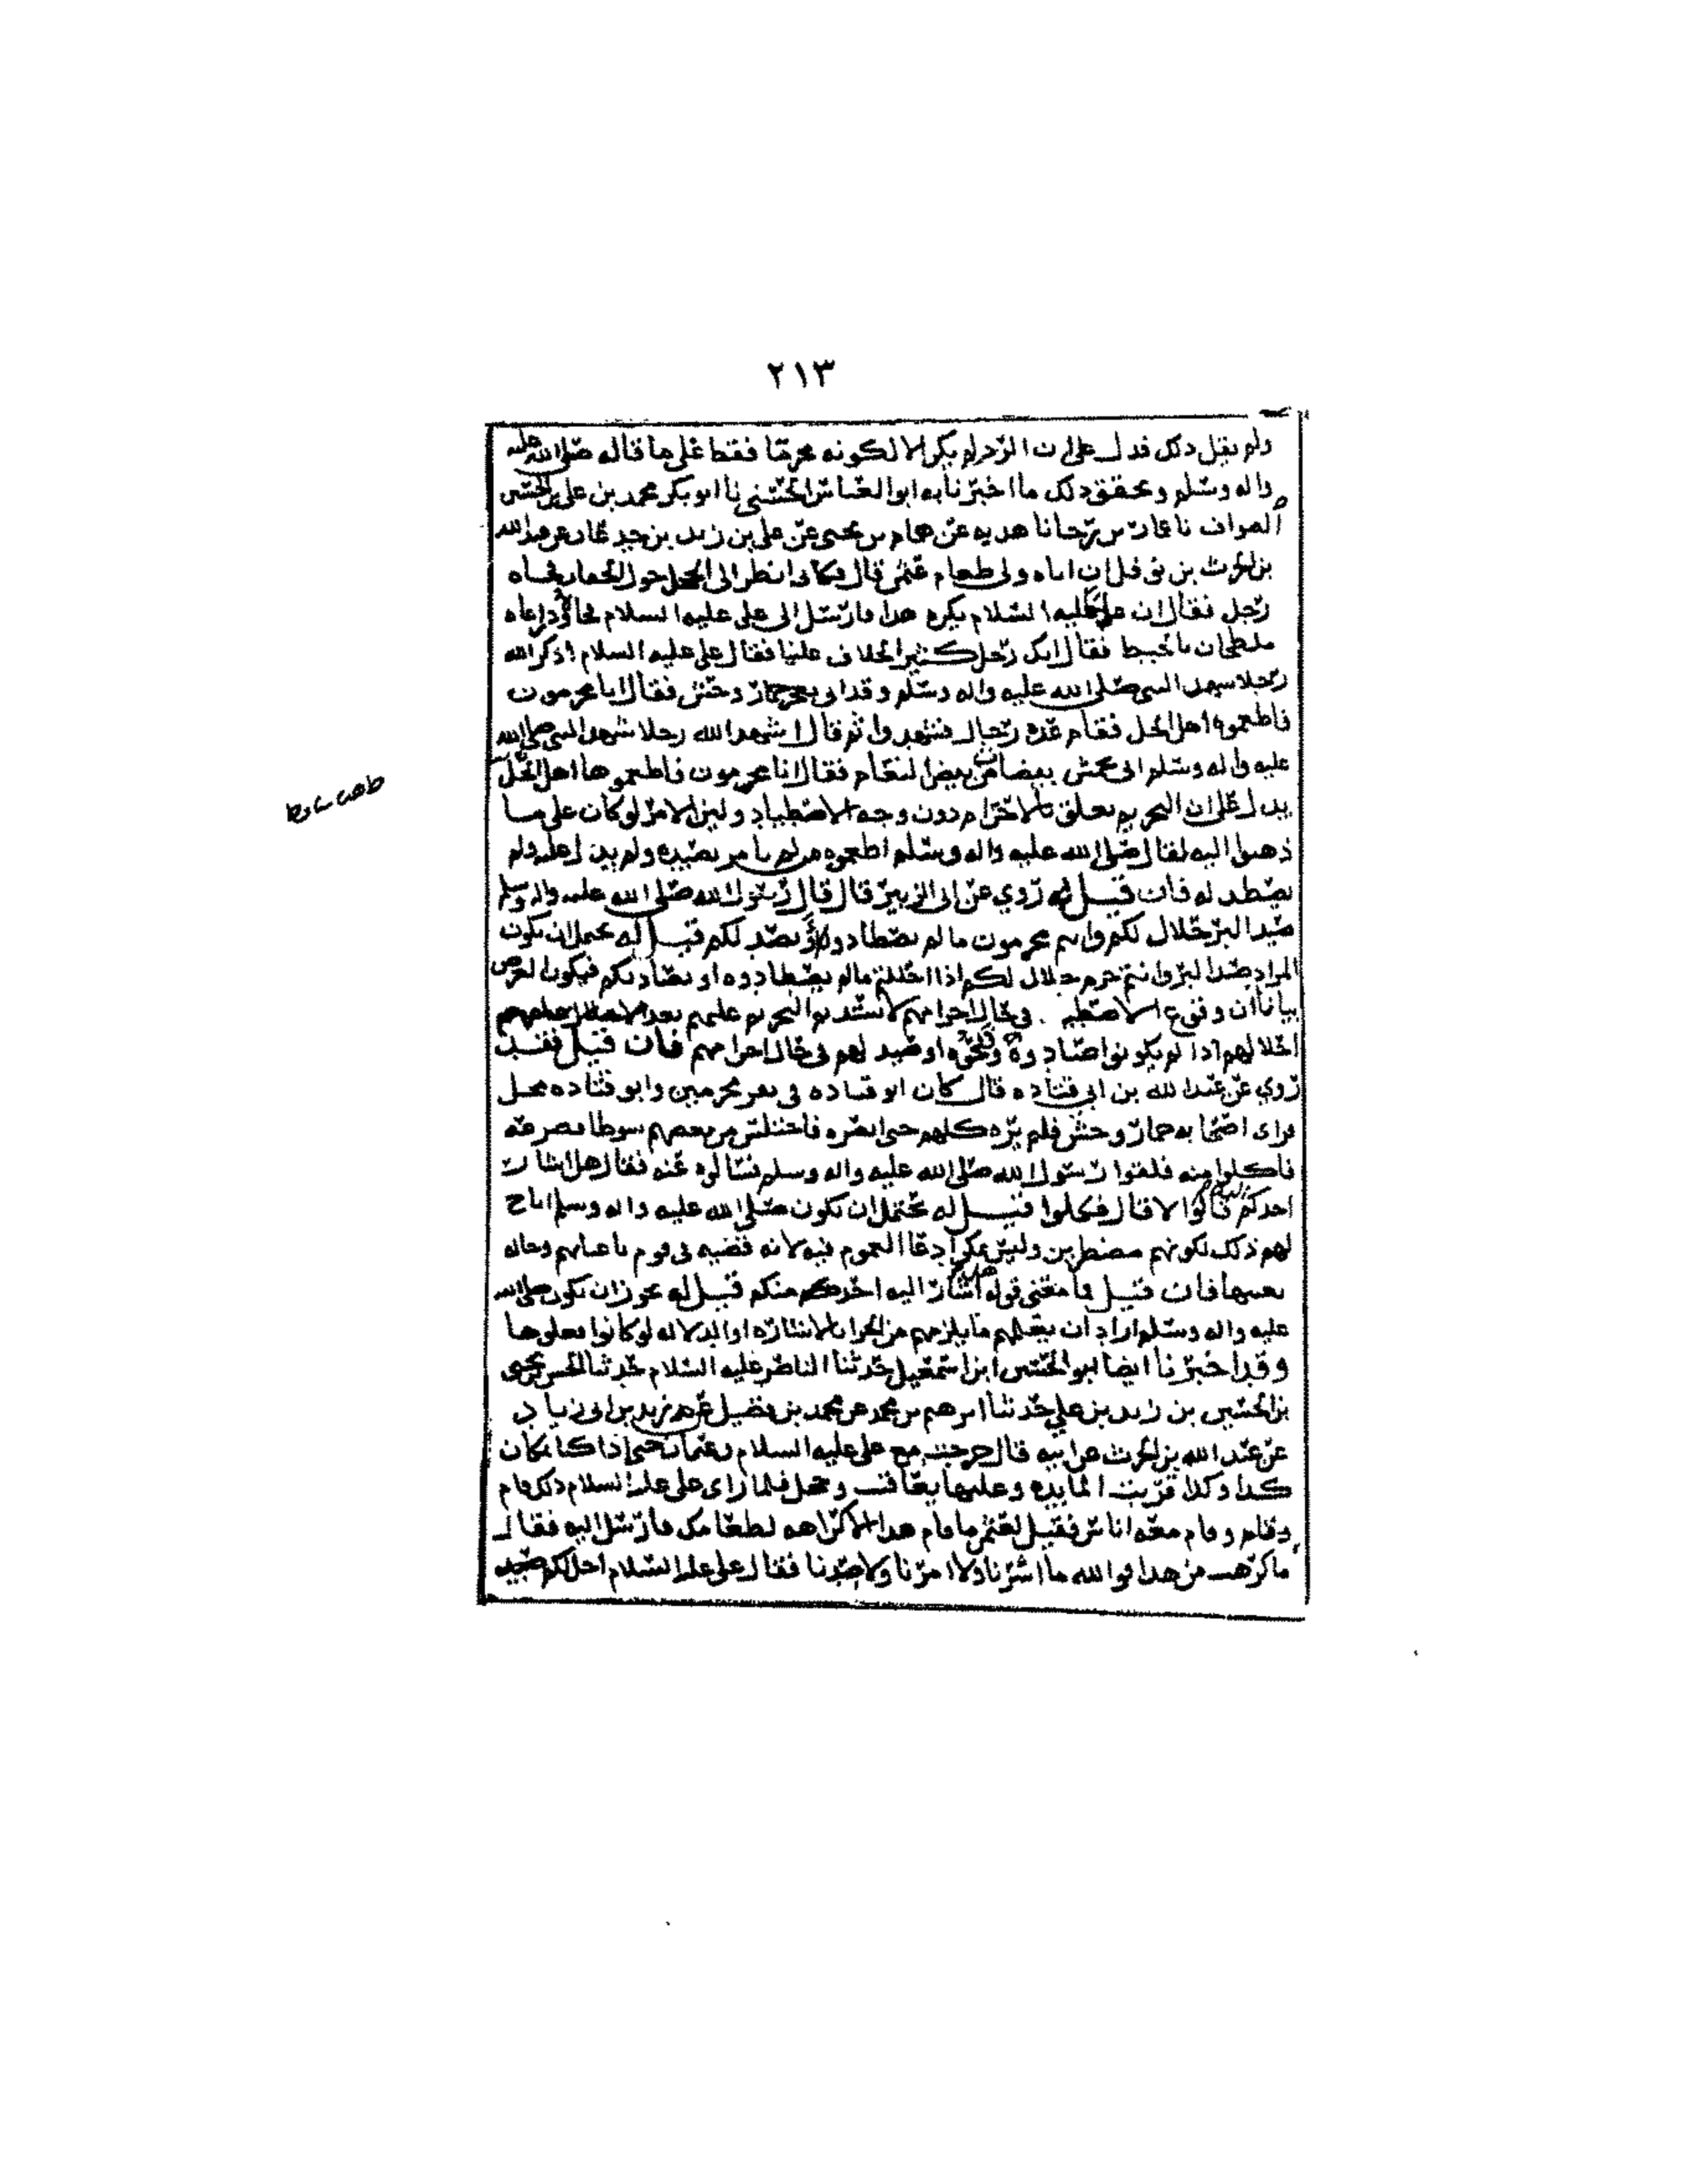 ٢١٣
ولم يقل ذلك فدل على ان الرد لم يكن الا لكونه محرما فقط على ما قاله صلى الله عليه
واله وسلم ويحقق ذلك ما اخبرنا به ابو العباس الحسني نا ابو بكر محمد بن علي بن الحسين
الصواف نا عمار بن رجا نا هدبه عن همام بن يحيى عن علي بن زيد بن جدعان عن عبد الله
بن الحرث بن نوفل ان اباه ولي طعام عثمن قال فكاني انظر الى الحجل حول الجفان فجاه
رجل فقال ان عليا عليه السلام يكره هذا فارسل الى علي عليه السلام فجا وذراعاه
ملطخان بالخبط فقال انك رجل كثير الخلاف علينا فقال علي عليه السلام اذكر الله
رجلا شهد النبي صلى الله عليه واله وسلم وقد اتي بعجز حمار وحش فقال انا محرمون
فاطعموه اهل الحل فقام عده رجال فشهدوا ثم قال اشهد الله رجلا شهد النبي صلى الله
عليه واله وسلم اتي بخمس بيضات من بيض النعام فقال انا محرمون فاطعموها اهل الحل
يدل على ان التحريم تعلق بالاحرام دون وجه الاصطياد وليس الامر لو كان على ما
ذهبوا اليه لقال صلى الله عليه واله وسلم اطعموه من لم يامر بصيده ولم يدل عليه ولم
يصطد له فان قيل انه روي عن ابي الزبير قال قال رسول الله صلى الله عليه واله وسلم
صيد البر حلال لكم وانتم محرمون ما لم تصطادوه او يصد لكم قيل له يحتمل ان يكون
المراد صيد البر وانتم حرم حلال لكم اذا احللتم ما لم تصطادوه او يصاد لكم فيكون الغرض
بيانا ان وقوع الاصطياد في حال احرامهم لا يستديم التحريم عليهم بعد
احلالهم اذا لم يكونوا صادوه او صيد لهم في حال احرامهم فان قيل فقد
روي عن عبد الله بن ابي قتاده قال كان ابو قتاده في نفر محرمين وابو قتاده محل
فراى اصحابه حمار وحش فلم يره كلهم حتى ابصره فاختلس من بعضهم سوطا فصرعه
فاكلوا منه فلقوا رسول الله صلى الله عليه واله وسلم فسالوه عنه فقال هل اشار
احدكم اليه قالوا لا قال فكلوا قيل له يحتمل ان يكون صلى الله عليه واله وسلم اباح
لهم ذلك لكونهم مضطرين وليس يمكن ادعا العموم فيه لانه قضيه في قوم باعيانهم وحاله
بعينها فان قيل فما معنى قوله هل اشار اليه احد منكم قيل له يجوز ان يكون صلى الله
عليه واله وسلم اراد ان يعلمهم ما يلزمهم من الجزا بالاشاره او الدلاله لو كانوا فعلوها
وقد اخبرنا ايضا ابو الحسين ابن اسمعيل حدثنا الناصر عليه السلام حدثنا الحسن بن يحيى
بن الحسين بن زيد بن علي حدثنا ابرهيم بن محمد عن محمد بن فضيل عن يزيد بن ابي زياد
عن عبد الله بن الحرث عن ابيه قال خرجت مع علي عليه السلام وعثمان حتى اذا كنا بمكان
كذا وكذا قربت المايده وعليها يعاقيب وحجل فلما راى علي عليه السلام ذلك قام
وقام معه اناس فقيل لعثمن ما قام هذا الا كراهه لطعامك فارسل اليه فقال
ما كرهت من هذا فوالله ما اشرنا ولا امرنا ولا صدنا فقال علي عليه السلام احل لكم صيد